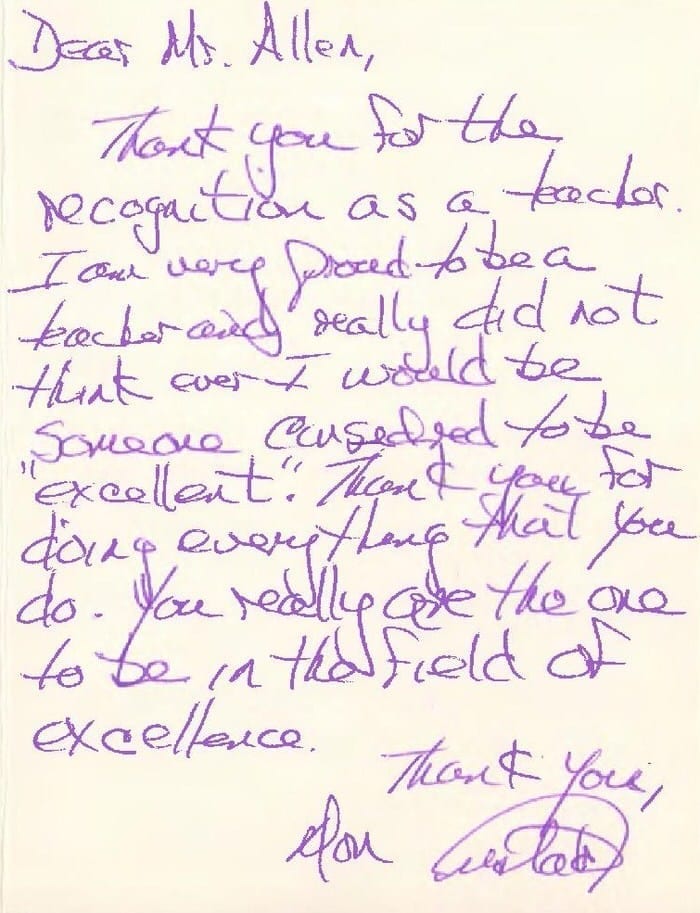 Dear Mr. Allen,
Thank you for the
recognition as a teacher.
I am very proud to be a
teacher and really did not
think ever I would be
someone to be
"excellent". Thank you for
doing everything that you
do. You really are the one
to be in the field of
excellence.
Thank you,